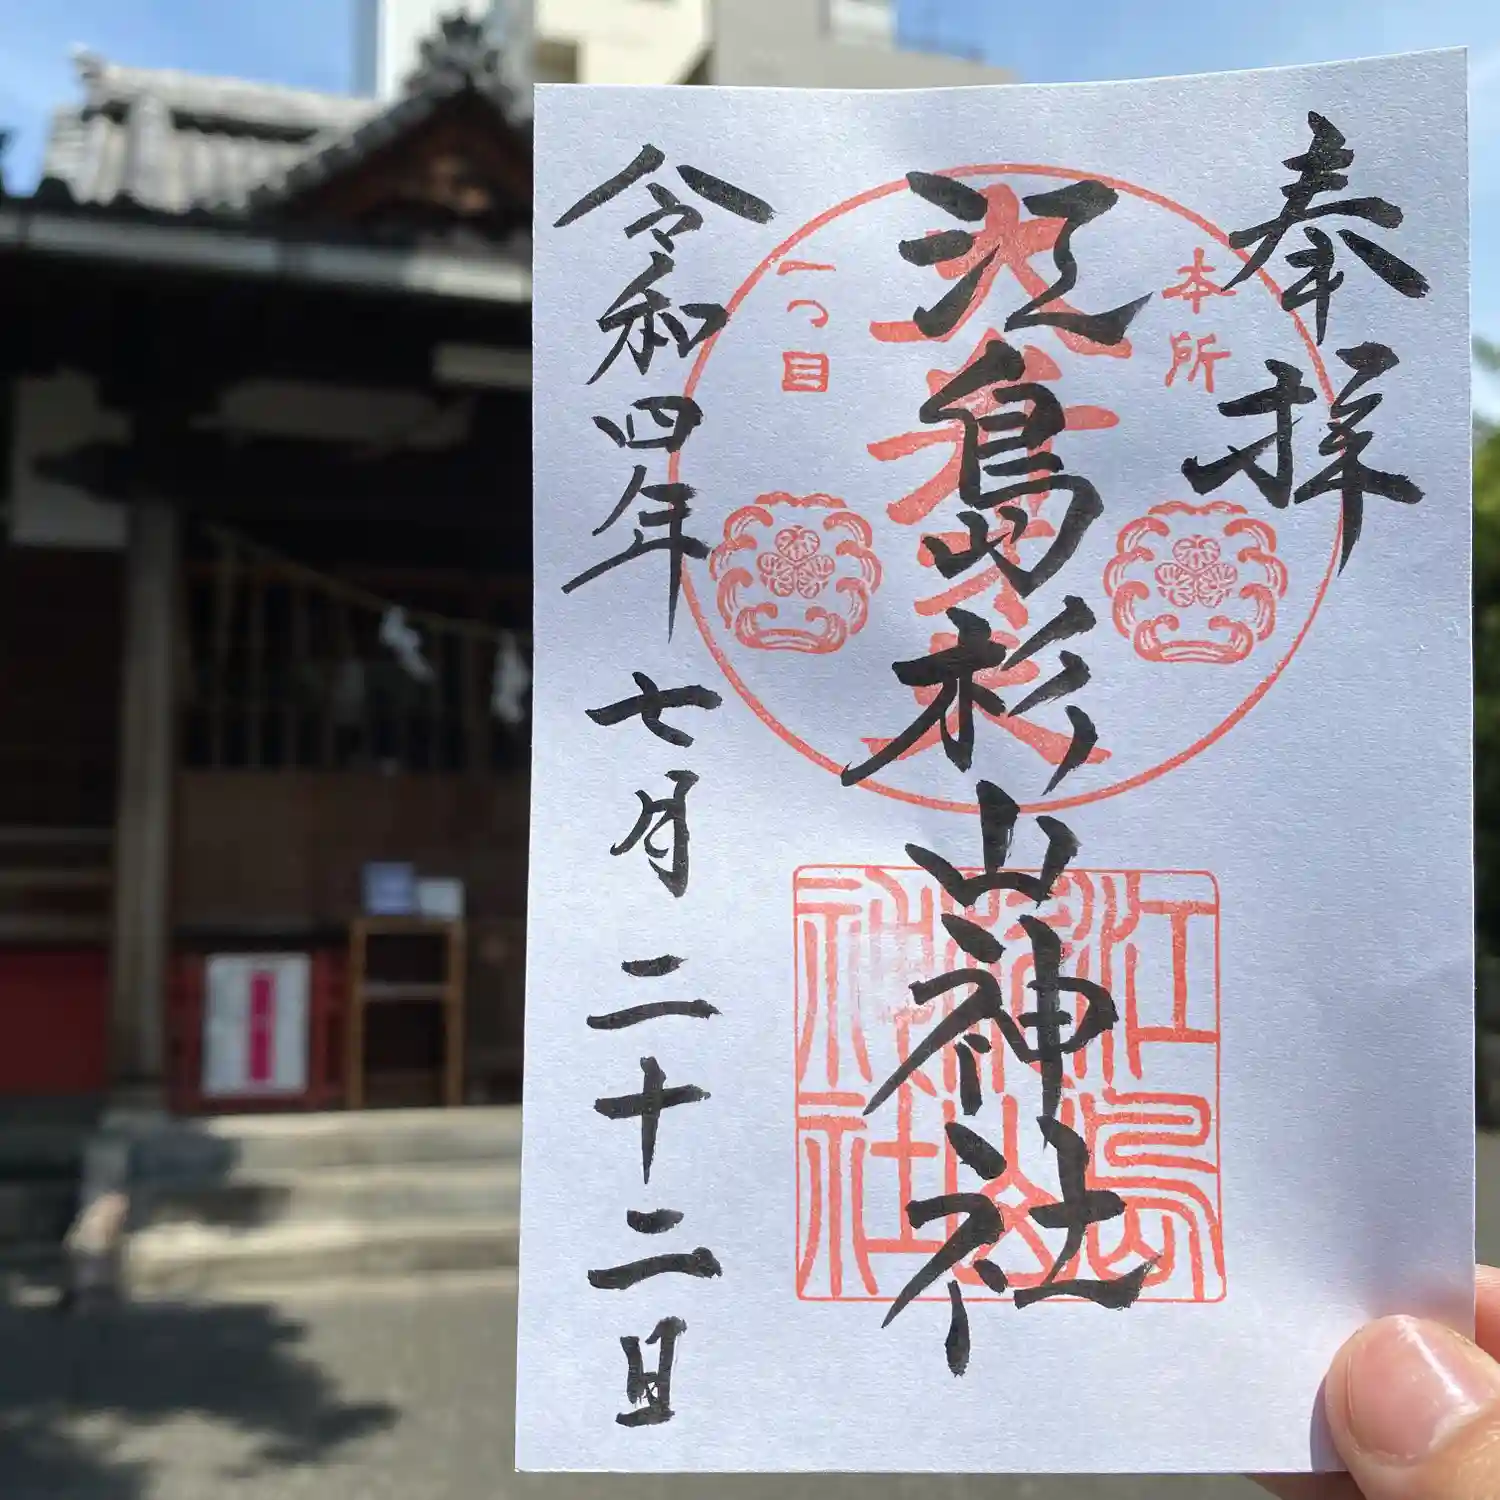 奉拝
本所
江島杉山神社
一つ目
江島
杉山
神社
令和四年七月二十二日